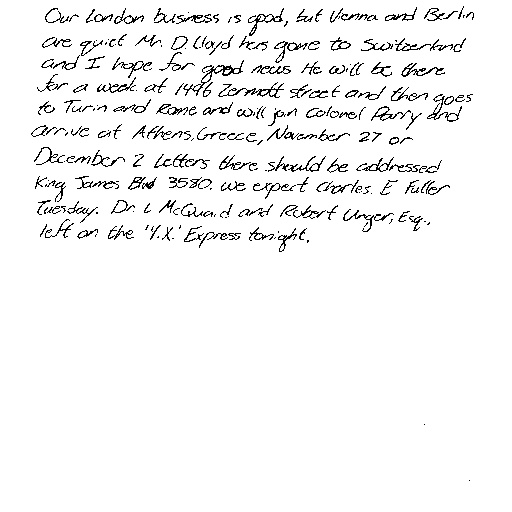 Our London business is good, but Vienna and Berlin
are quiet Mr. D. Lloyd has gone to Switzerland
and I hope for good news He will be there
for a week at 1496 Zermott street and then goes
to Turin and Rome and will join Colonel Parry and
arrive at Athens, Greece, November 27 or
December 2 Letters there should be addressed
King James Blvd 3580. We expert Charles. E Fuller
Tuesday. Dr. L McQuaid and Robert Unger, Esq.,
left on the 'Y.X.' Express tonight.